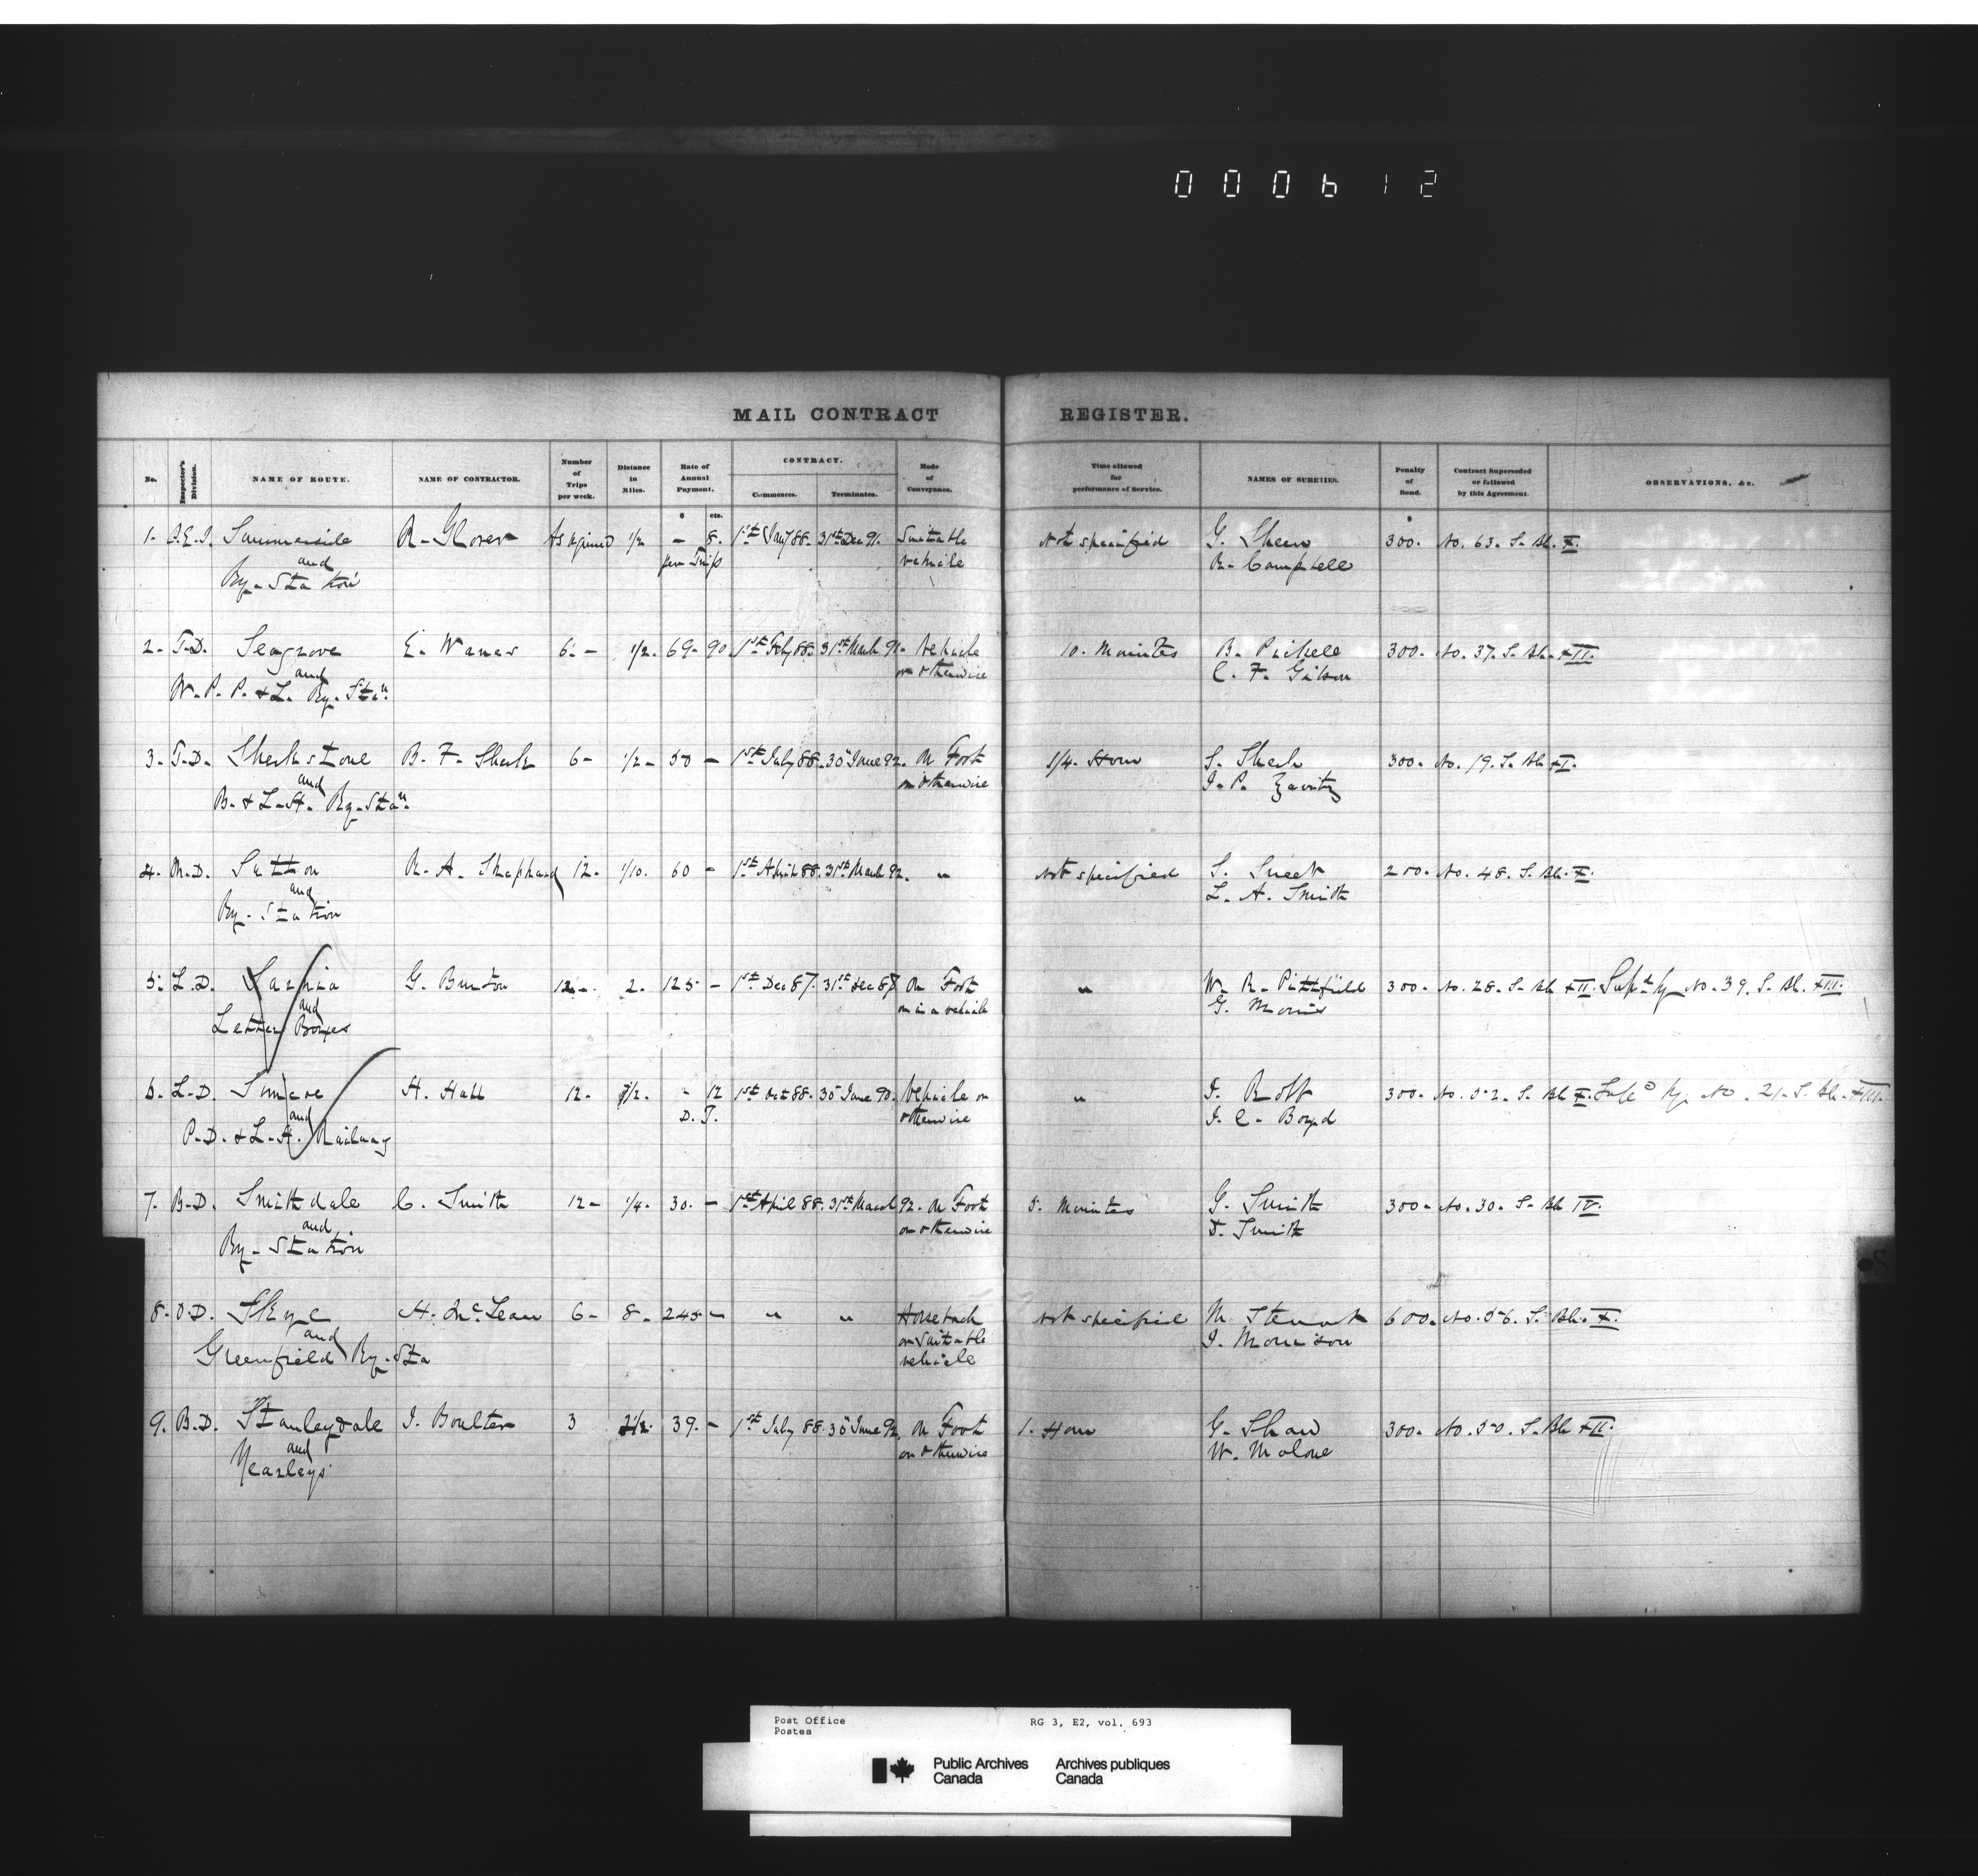 000612
MAIL CONTRACT REGISTER.
No. Inspector's Division. NAME OF ROUTE. NAME OF CONTRACTOR. Number of Trips per week. Distance in Miles. Rate of Annual Payment. CONTRACT. Commences. Terminates. Mode of Conveyance. Time allowed for performance of Service. NAMES OF SURETIES. Penalty of Bond. Contract Superseded or followed by this Agreement. OBSERVATIONS, &c.
$ cts. $
1. P.E.I. Summerside R. Glover As required 1/2 - 8. 1st Jany 88. 31st Dec 91. Suitable Not specified G. Sheen 300. No. 63. S. Bk. X.
and per Trip vehicle R. Campbell
Ry. Station
2. T.D. Seagrove E. Wanes 6. - 1/2. 69. 90. 1st Feby 88. 31st March 91. Vehicle 10. Minutes B. 300. No. 37. S. Bk. XII.
and or otherwise C. F. Gibson
W. P. P. & L. Ry. Stan
3. T.D. Sherkstone B. F. Sherk 6 - 1/2 - 50 - 1st July 88. 30 June 92. On Foot 1/4. Hour S. Sherk 300. No. 19. S. Bk XI.
and or otherwise J. P. Zavitz
B. & L. H. Ry. Stan
4. M.D. Sutton R. A. Shephard 12. 1/10. 60 - 1st April 88. 31st March 92. " Not specified S. Sweet 200. No. 48. S. Bk. X.
and L. A. Smith
Ry. Station
5. L.D. Sarnia G. Burton 12. - 2. 125 - 1st Dec 87. 31st Dec 87 On Foot " W. R. Pittfield 300. No. 28. S. Bk XII. Supd by No. 39. S. Bk. XIII.
and or in a vehicle G. Morris
Letter Boxes
6. L.D. Simcoe H. Hall 12. 1/2. - 12 1st Oct 88. 30 June 90. Vehicle or " J. Rolf 300. No. 52. S. Bk X. Supd by No. 21. S. Bk. XIII.
and D. T. otherwise J. C. Boyd
P. D. & L. H. Railway
7. B.D. Smithdale C. Smith 12 - 1/4. 30. - 1st April 88. 31st March 92. On Foot 5. Minutes G. Smith 300. No. 30. S. Bk IV.
and or otherwise D. Smith
Ry. Station
8. O.D. Skye H. McLean 6 - 8. 245 - " " Horseback Not specified N. Stewart 600. No. 56. S. Bk. X.
and or suitable J. Morrison
Greenfield Ry. Sta vehicle
9. B.D. Stanleydale J. Boulter 3 2 1/2. 39. - 1st July 88. 30 June 92. On Foot 1. Hour G. Shaw 300. No. 50. S. Bk XII.
and or otherwise W. Malone
Yearleys
Post Office RG 3, E2, vol. 693
Postes
Public Archives Archives publiques
Canada Canada